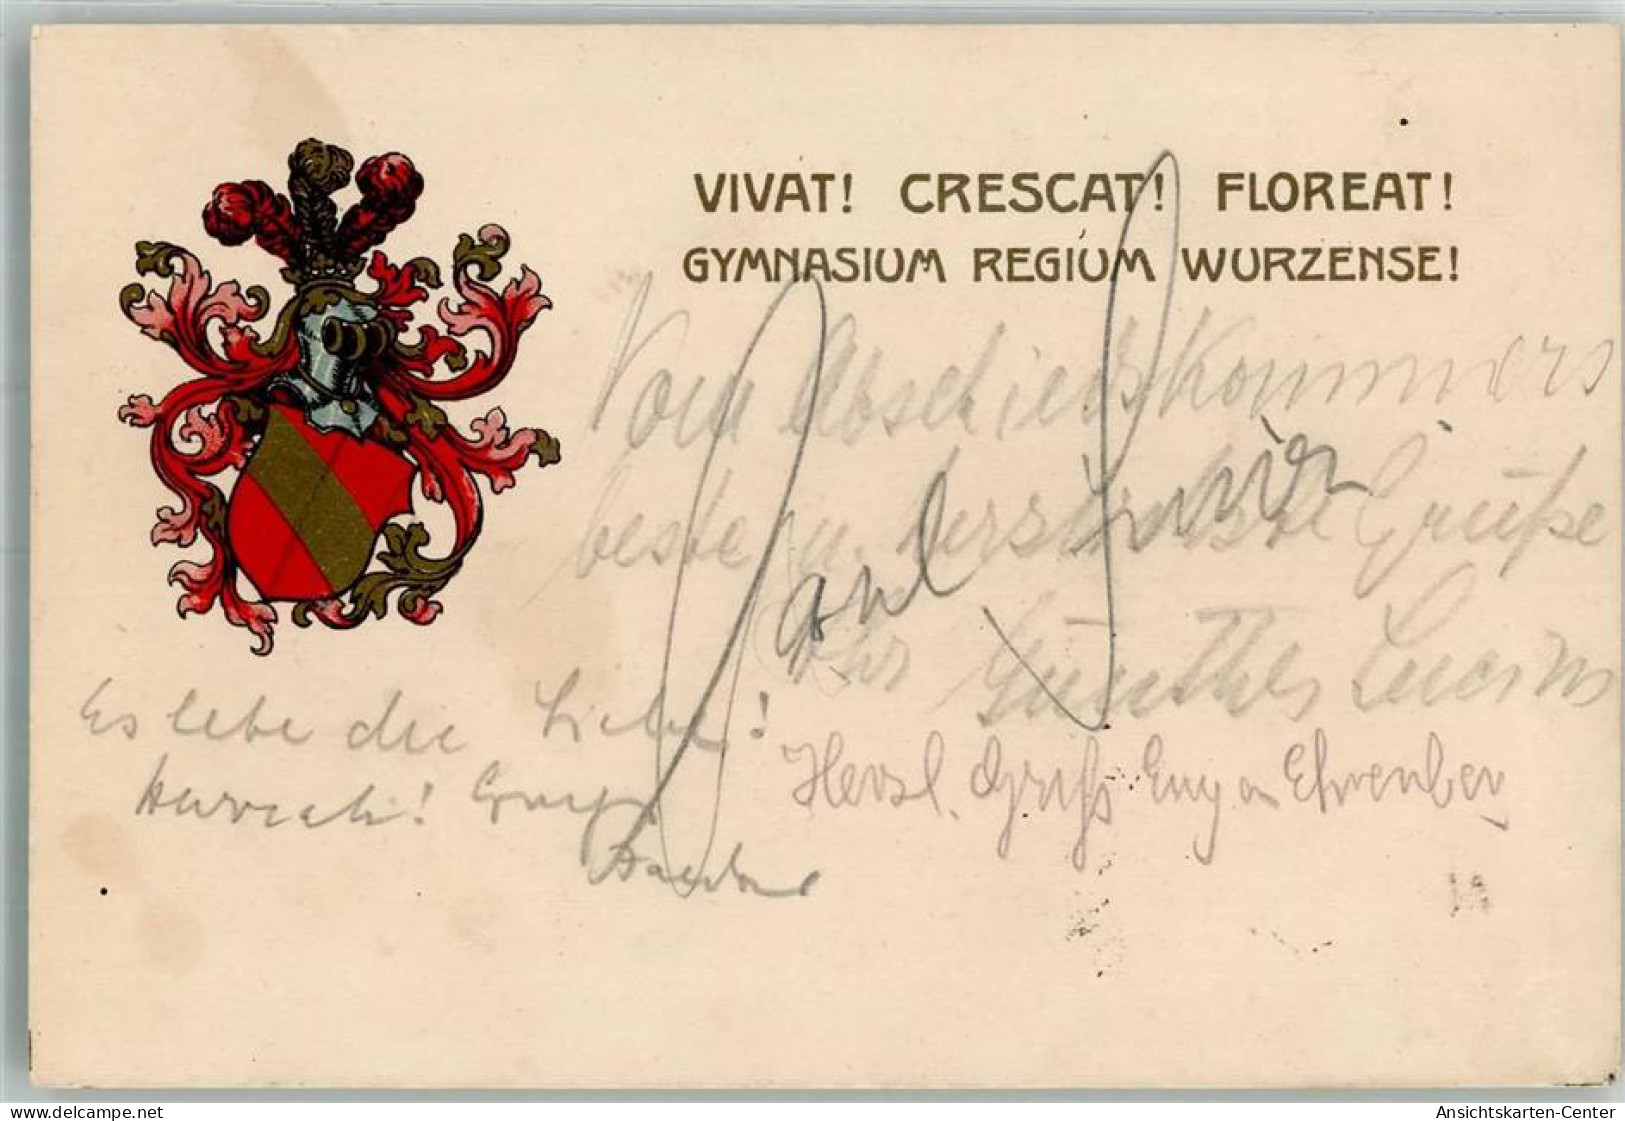 VIVAT! CRESCAT! FLOREAT!
GYMNASIUM REGIUM WURZENSE!
Vom Abschiedskommers
beste u. Grüße
Ihr Günther
Paul
Es lebe die Liebe!
Hurrah! Gruß
Herzl. Gruß Eugen Ehrenberg
delcampe.net
Ansichtskarten-Center